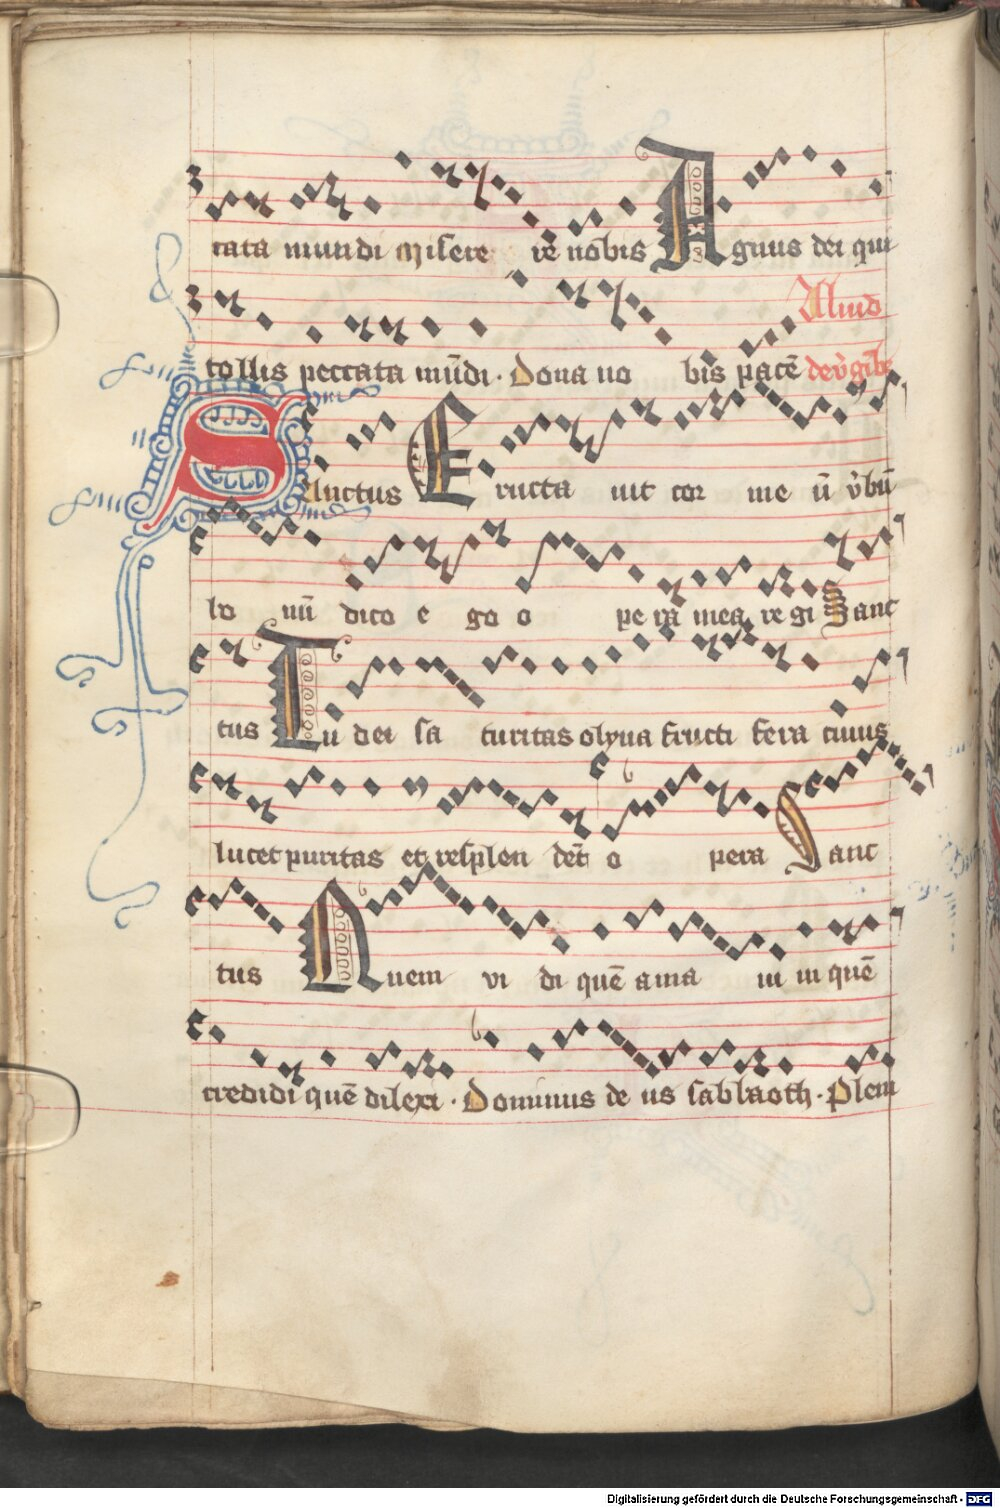 cata mundi misere re nobis Agnus dei qui
tollis peccata mūdi · Dona no bis pacē
Aliud
de v̄gīb
Sanctus Eructa uit cor me ū v̄bū
bo nū dico e go o pe ra mea re gi Sanc
tus Tu dei sa turitas olyua fructi fera cuius
lucet puritas et resplen dēt o pera Sanc
tus Quem vi di quē ama ui in quē
credidi quē dilexi · Dominus de us sabbaoth · Pleni
Digitalisierung gefördert durch die Deutsche Forschungsgemeinschaft - DFG